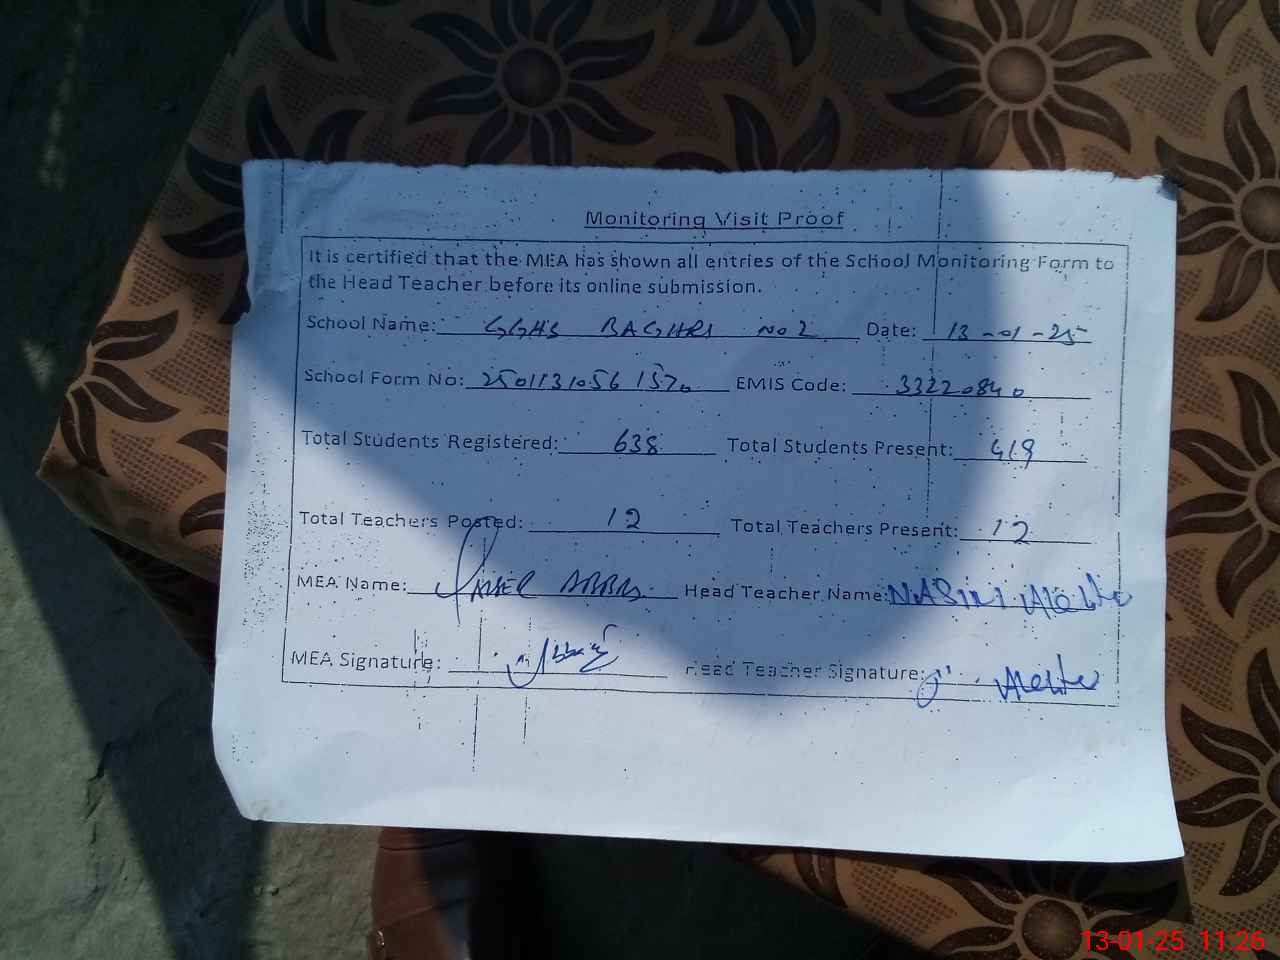 Monitoring Visit Proof
It is certified that the MEA has shown all entries of the School Monitoring Form to
the Head Teacher before its online submission.
School Name: GGHS BAGHRI NO 2 Date: 13-01-25
School Form No: 2501131056 1570 EMIS Code: 33220840
Total Students Registered: 638 Total Students Present: 419
Total Teachers Posted: 12 Total Teachers Present: 12
MEA Name: ABBAS Head Teacher Name:
MEA Signature: Head Teacher Signature:
13-01-25 11:26